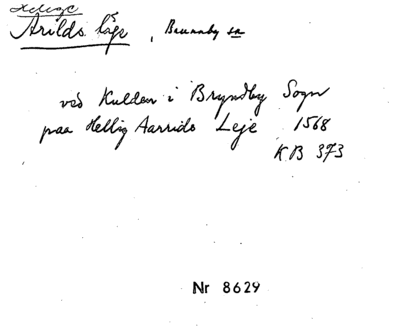 Helige
Arilds läge, Brunnby sn
ved Kullen i Bryndby Sogn
paa Hellig Aarrids Leje 1568
KB 373
Nr 8629